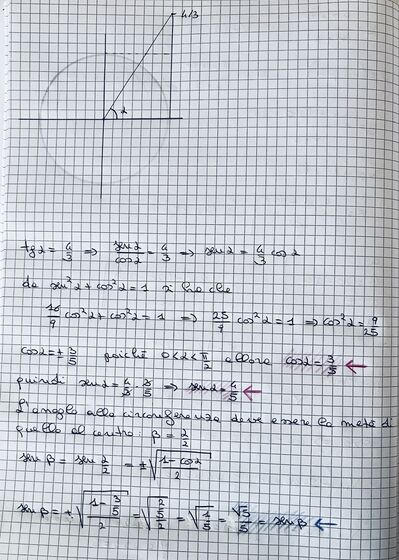 4/3
α
tgα = 4/3 ⇒ senα/cosα = 4/3 ⇒ senα = 4/3 cosα
da sen²α + cos²α = 1 si ha che
16/9 cos²α + cos²α = 1 ⇒ 25/9 cos²α = 1 ⇒ cos²α = 9/25
cosα = ± 3/5 poiché 0 < α < π/2 allora cosα = 3/5 ←
quindi senα = 4/3 · 3/5 ⇒ senα = 4/5 ←
L'angolo alla circonferenza deve essere la metà di
quello al centro: β = α/2
senβ = sen α/2 = ±√((1 - cosα)/2)
senβ = +√((1 - 3/5)/2) = √((2/5)/2) = √(1/5) = √5/5 = senβ ←